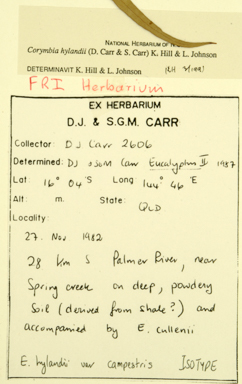 NATIONAL HERBARIUM OF N
Corymbia hylandii (D. Carr & S. Carr) K. Hill & L. Johnson
DETERMINAVIT K. Hill & L. Johnson
FRI Herbarium
EX HERBARIUM
D.J. & S.G.M. CARR
Collector: DJ Carr 2606
Determined: DJ & SGM Carr Eucalyptus II 1987
Lat. 16° 04'S Long: 144° 46'E
Alt: m. State: QLD
Locality:
27. Nov 1982
28 km S Palmer River, near
Spring creek on deep, powdery
soil (derived from shale?) and
accompanied by E. cullenii
E. hylandii var campestris ISOTYPE